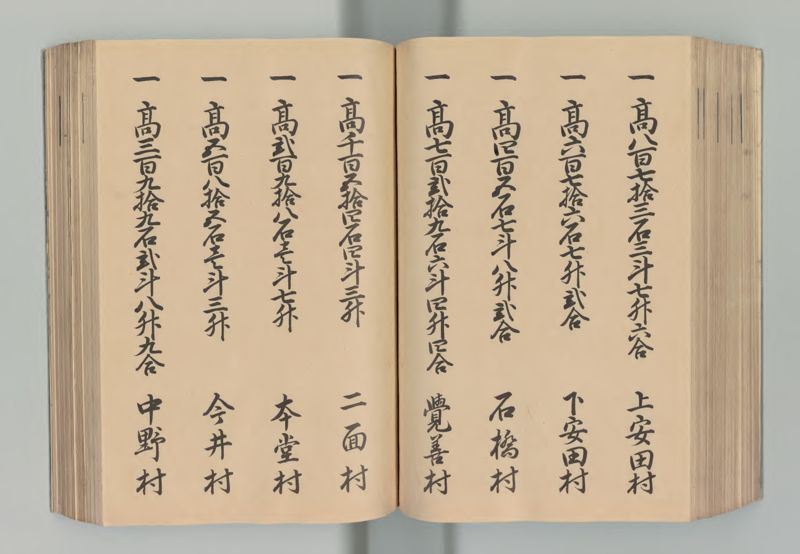 一 高八百七拾三石三斗七升六合 上安田村
一 高六百七拾六石七升弐合 下安田村
一 高四百五石七斗八升弐合 石橋村
一 高七百弐拾九石六斗四升四合 覺善村
一 高千百五拾四石四斗三升 二面村
一 高弐百九拾八石壱斗七升 本堂村
一 高五百八拾五石壱斗三升 今井村
一 高三百九拾九石弐斗八升九合 中野村